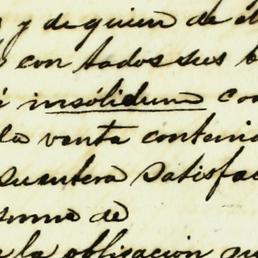 y de quien de el
con todos sus b
insólidum con
la venta conteni
su entera satisfac
suma de
la obligacion qu